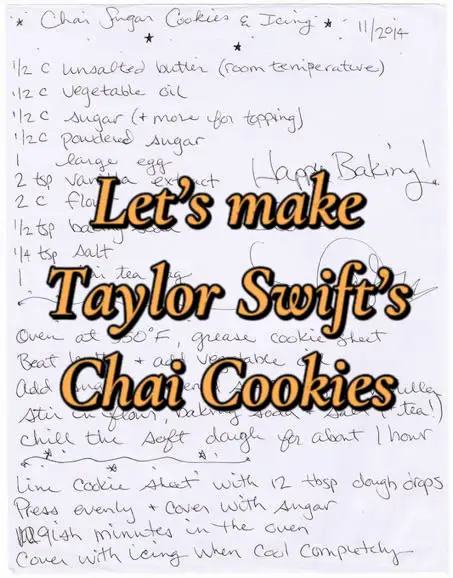 * Chai Sugar Cookies & Icing * 11/2014
1/2 C unsalted butter (room temperature)
1/2 C vegetable oil
1/2 C sugar (+ more for topping)
1/2 C powdered sugar
1 large egg
Happy Baking!
2 tsp vanilla extract
2 C
1/2 tsp
1/4 tsp salt
1 tea
Let's make
Taylor Swift's
Chai Cookies
Oven at 350°F, grease cookie sheet
Beat + add
Add
stir in flour, baking soda + tea!)
chill the soft dough for about 1 hour
Line cookie sheet with 12 tbsp dough drops
Press evenly + cover with sugar
9ish minutes in the oven
Cover with icing when cool completely